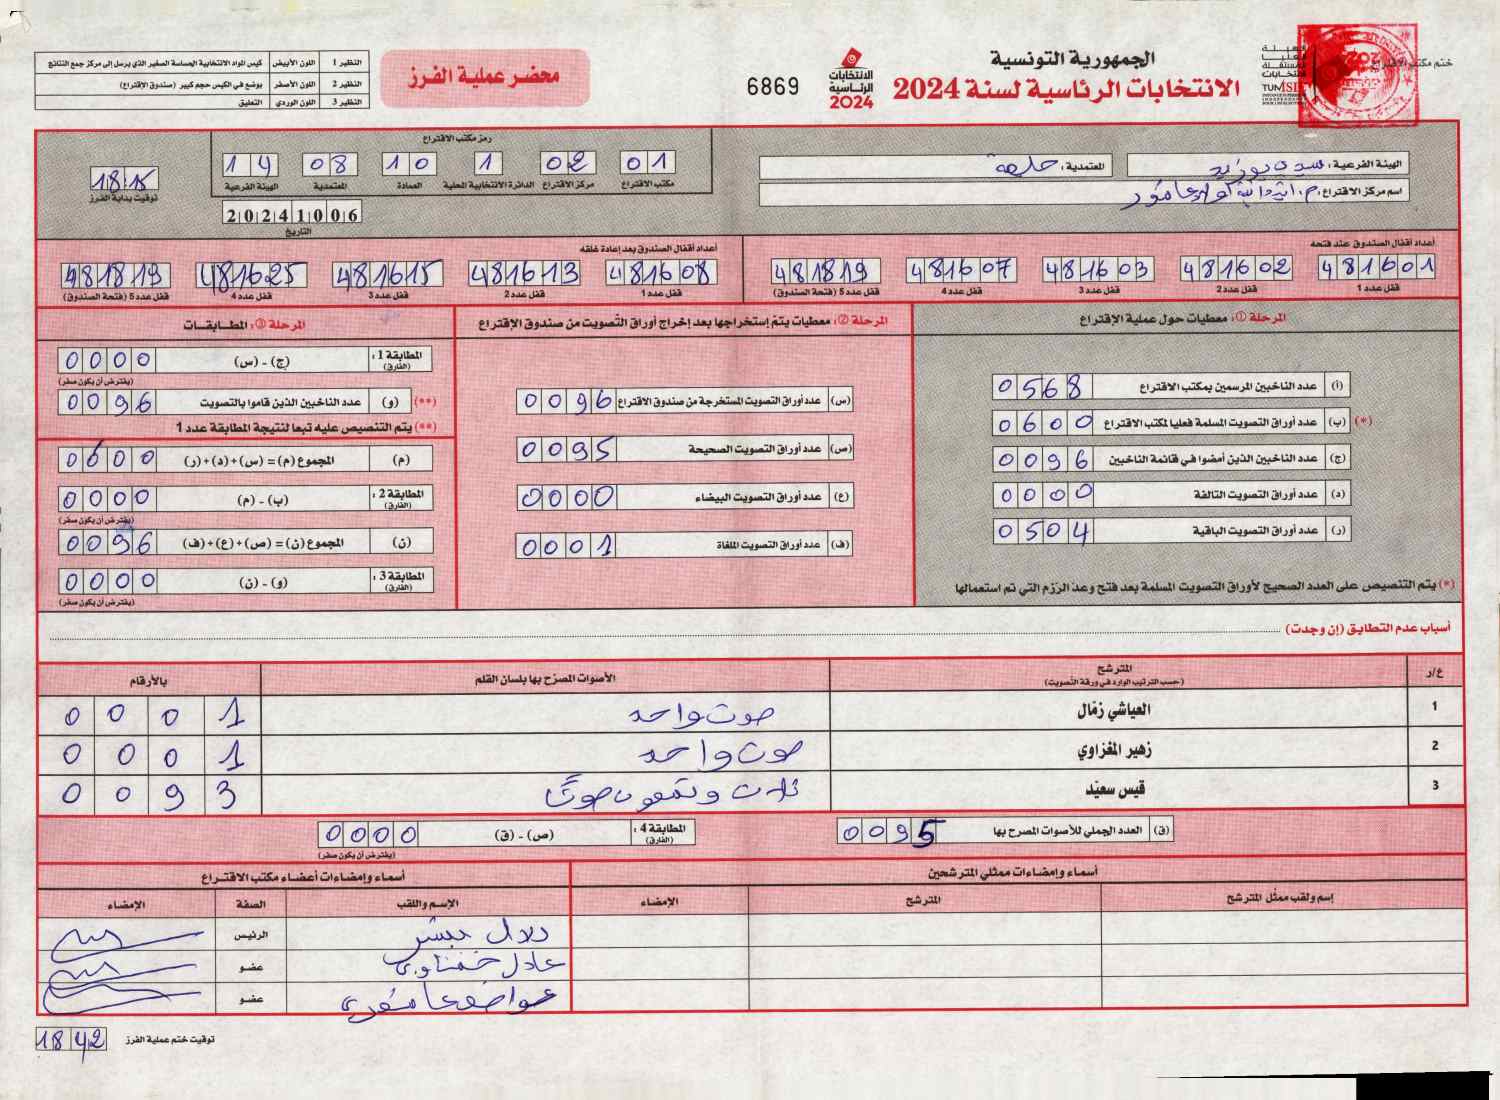 الجمهورية التونسية
الانتخابات الرئاسية لسنة 2024
الهيئة العليا المستقلة للانتخابات
ختم مكتب الاقتراع
الانتخابات الرئاسية 2024
6869
محضر عملية الفرز
النظير 1 اللون الأبيض كيس المواد الانتخابية الحساسة الصغير الذي يرسل إلى مركز جمع النتائج
النظير 2 اللون الأصفر يوضع في الكيس حجم كبير (صندوق الاقتراع)
النظير 3 اللون الوردي التعليق
الهيئة الفرعية: سيدي بوزيد المعتمدية:
اسم مركز الاقتراع:
رمز مكتب الاقتراع
01 02 1 10 08 14
مكتب الاقتراع مركز الاقتراع الدائرة الانتخابية المحلية العمادة المعتمدية الهيئة الفرعية
20241006
التاريخ
18:15
توقيت بداية الفرز
أعداد أقفال الصندوق عند فتحه
481601 481602 481603 481607 481819
قفل عدد 1 قفل عدد 2 قفل عدد 3 قفل عدد 4 قفل عدد 5 (فتحة الصندوق)
أعداد أقفال الصندوق بعد إعادة غلقه
481608 481613 481615 481625 481819
قفل عدد 1 قفل عدد 2 قفل عدد 3 قفل عدد 4 قفل عدد 5 (فتحة الصندوق)
المرحلة ①: معطيات حول عملية الإقتراع
(أ) عدد الناخبين المرسمين بمكتب الاقتراع 0568
(*) (ب) عدد أوراق التصويت المسلمة فعليا لمكتب الاقتراع 0600
(ج) عدد الناخبين الذين أمضوا في قائمة الناخبين 0096
(د) عدد أوراق التصويت التالفة 0000
(ر) عدد أوراق التصويت الباقية 0504
(*) يتم التنصيص على العدد الصحيح لأوراق التصويت المسلمة بعد فتح وعد الرزم التي تم استعمالها
المرحلة ②: معطيات يتم إستخراجها بعد إخراج أوراق التصويت من صندوق الإقتراع
(س) عدد أوراق التصويت المستخرجة من صندوق الاقتراع 0096
(ص) عدد أوراق التصويت الصحيحة 0095
(ع) عدد أوراق التصويت البيضاء 0000
(ف) عدد أوراق التصويت الملغاة 0001
المرحلة ③: المطابقات
المطابقة 1: (الفارق) (ج) - (س) 0000
(يفترض أن يكون صفر)
(**) (و) عدد الناخبين الذين قاموا بالتصويت 0096
(**) يتم التنصيص عليه تبعا لنتيجة المطابقة عدد 1
(م) المجموع (م) = (س)+(د)+(ر) 0600
المطابقة 2: (الفارق) (ب) - (م) 0000
(يفترض أن يكون صفر)
(ن) المجموع (ن) = (ص)+(ع)+(ف) 0096
المطابقة 3: (الفارق) (و) - (ن) 0000
(يفترض أن يكون صفر)
أسباب عدم التطابق (إن وجدت)
ع/ر المترشح الأصوات المصرّح بها بلسان القلم بالأرقام
(حسب الترتيب الوارد في ورقة التصويت)
1 العياشي زمّال صوت واحد 0001
2 زهير المغزاوي صوت واحد 0001
3 قيس سعيّد ثلاث وتسعون صوتا 0093
(ق) العدد الجملي للأصوات المصرح بها 0095
المطابقة 4: (الفارق) (ص) - (ق) 0000
(يفترض أن يكون صفر)
أسماء وإمضاءات ممثلي المترشحين
إسم ولقب ممثّل المترشح المترشح الإمضاء
أسماء وإمضاءات أعضاء مكتب الاقتراع
الإسم واللقب الصفة الإمضاء
دلال الرئيس
عادل عضو
عضو
توقيت ختم عملية الفرز 18 42